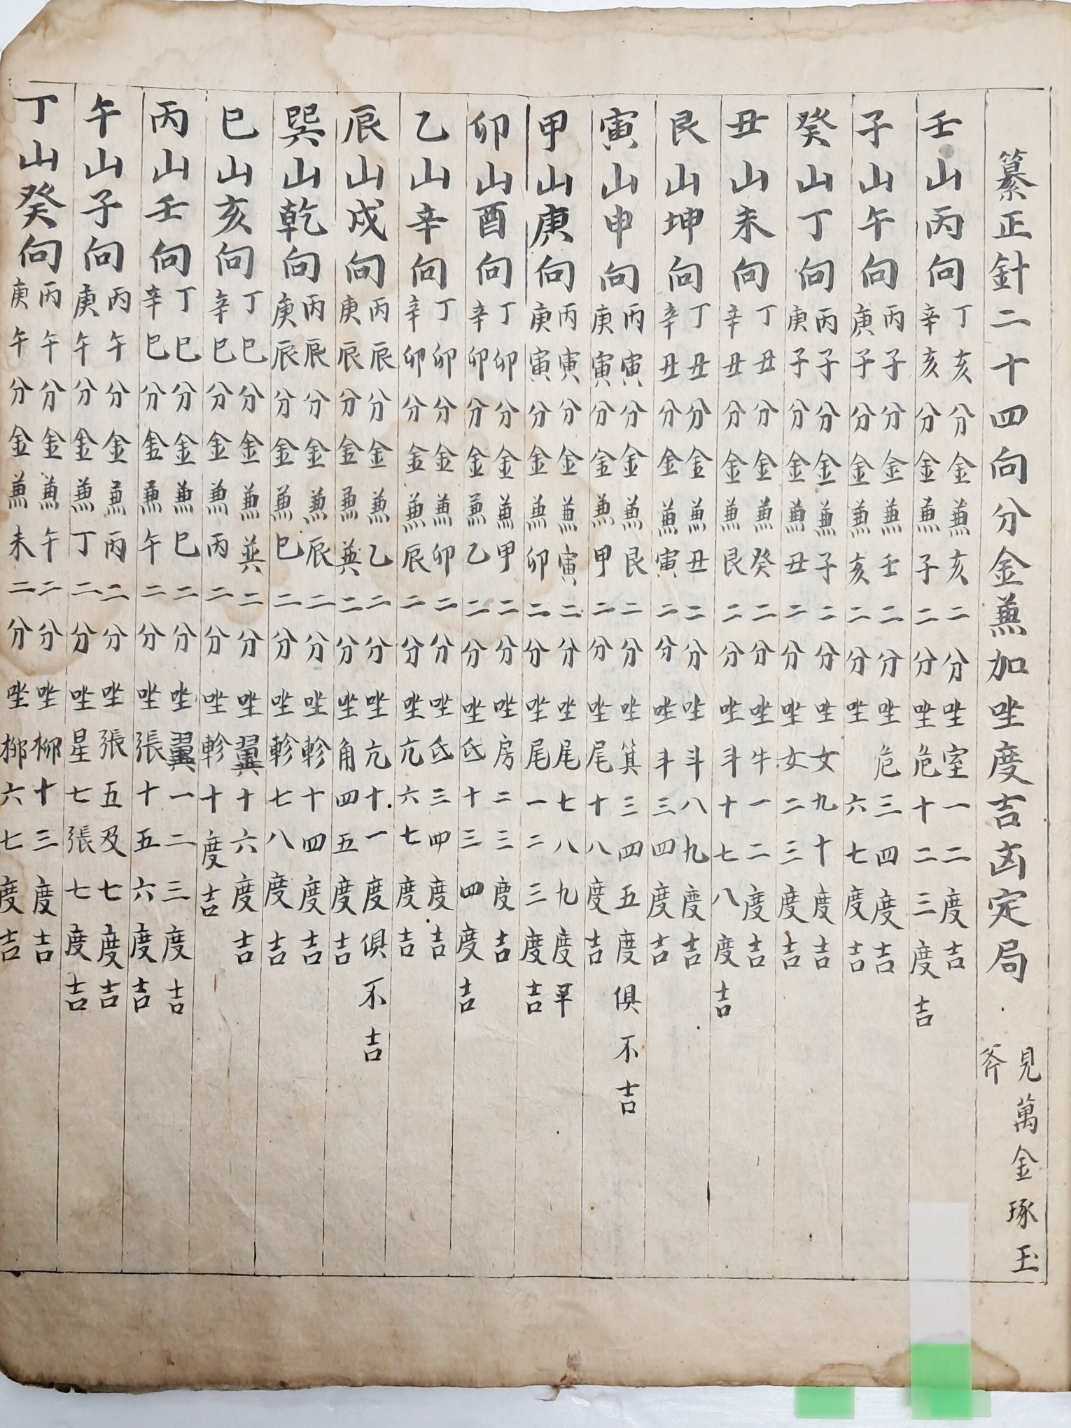 纂正針二十四向分金蒸加坐度吉凶定局
見萬金琢玉
斧
壬山丙向
丁亥分金蒸亥二分坐室一二度吉
辛亥分金蒸子二分坐危十二三度吉
子山午向
丙子分金蒸壬二分坐危三四度吉
庚子分金蒸亥二分坐六七度吉
癸山丁向
丙子分金蒸子二分坐女九十度吉
庚子分金蒸丑二分坐女二三度吉
丑山未向
丁丑分金蒸癸二分坐牛一二度吉
辛丑分金蒸艮二分坐斗十七八度吉
艮山坤向
丁丑分金蒸丑二分坐斗八九度吉
辛丑分金蒸寅二分坐斗三四度吉
寅山申向
丙寅分金蒸艮二分坐箕三四五度俱不吉
庚寅分金蒸甲二分坐尾十八度吉
甲山庚向
丙寅分金蒸寅二分坐尾七八九度平
庚寅分金蒸卯二分坐尾一二三度吉
卯山酉向
丁卯分金蒸甲二分坐房二三度吉
辛卯分金蒸乙二分坐氐十三四度吉
乙山辛向
丁卯分金蒸卯二分坐氐三四度吉
辛卯分金蒸辰二分坐亢六七度吉
辰山戌向
丙辰分金蒸乙二分坐亢十一度俱不吉
庚辰分金蒸巽二分坐角四五度吉
巽山乾向
丙辰分金蒸辰二分坐軫十四度吉
庚辰分金蒸巳二分坐軫七八度吉
巳山亥向
丁巳分金蒸巽二分坐翼十六度吉
辛巳分金蒸丙二分坐軫十度吉
丙山壬向
丁巳分金蒸巳二分坐翼一二三度吉
辛巳分金蒸午二分坐張十五六度吉
午山子向
丙午分金蒸丙二分坐張五及七度吉
庚午分金蒸丁二分坐星七張七度吉
丁山癸向
丙午分金蒸午二分坐柳十三度吉
庚午分金蒸未二分坐柳六七度吉